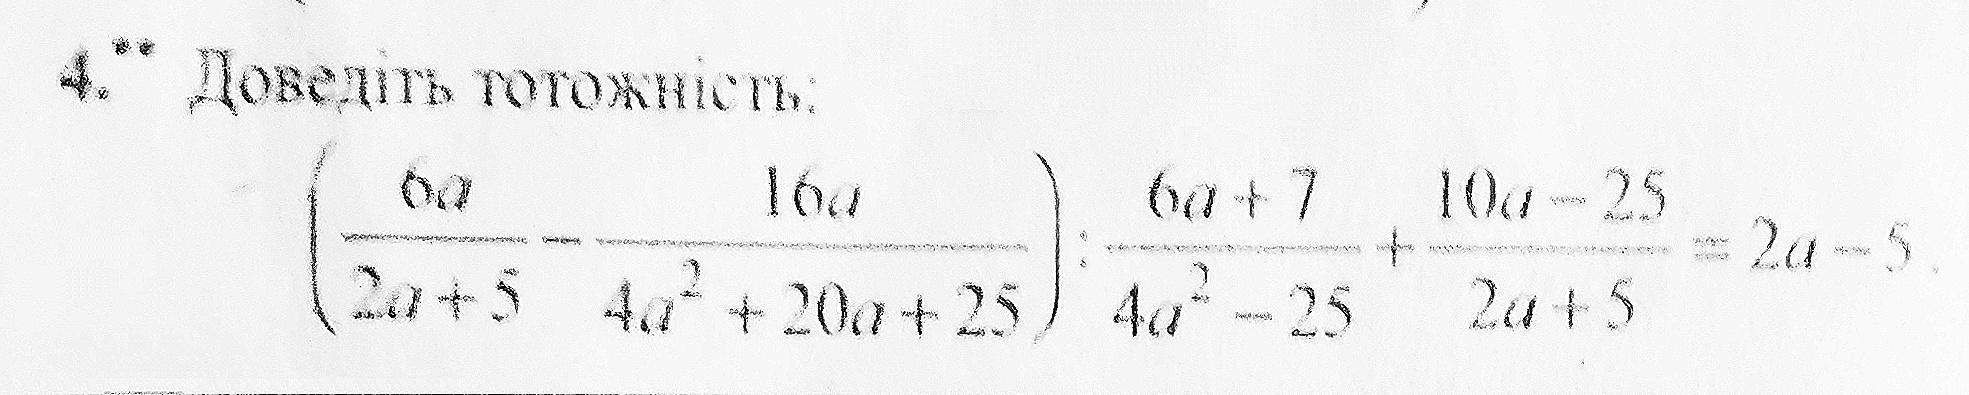 4.•• Доведіть тотожність:
(6a/(2a + 5) − 16a/(4a² + 20a + 25)) : (6a + 7)/(4a² − 25) + (10a − 25)/(2a + 5) = 2a − 5.